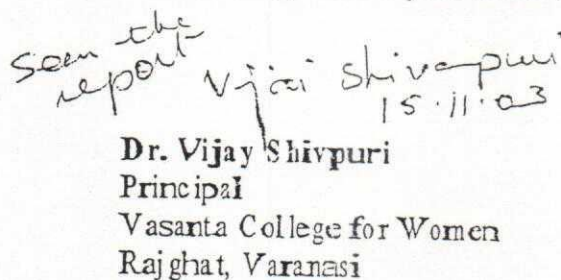 Seen the
report
Vijai Shivapuri
15.11.03
Dr. Vijay Shivpuri
Principal
Vasanta College for Women
Rajghat, Varanasi